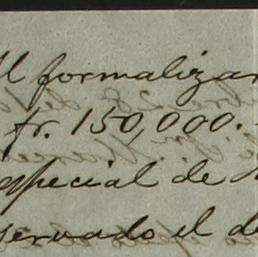 Al formalizar
fr. 150,000.-
especial de
servado el d